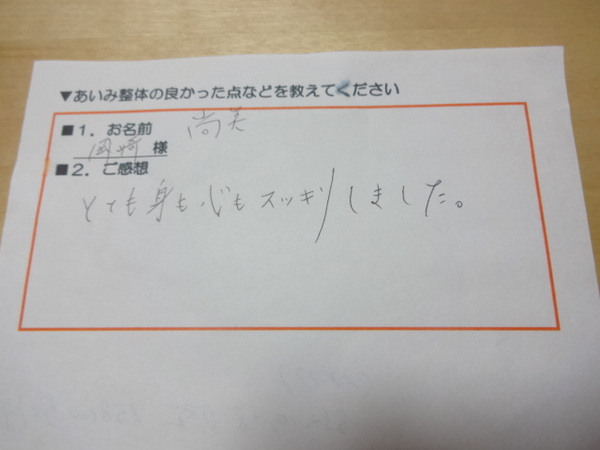 ▼あいみ整体の良かった点などを教えてください
■1．お名前 尚美
岡崎 様
■2．ご感想
とても身も心もスッキリしました。